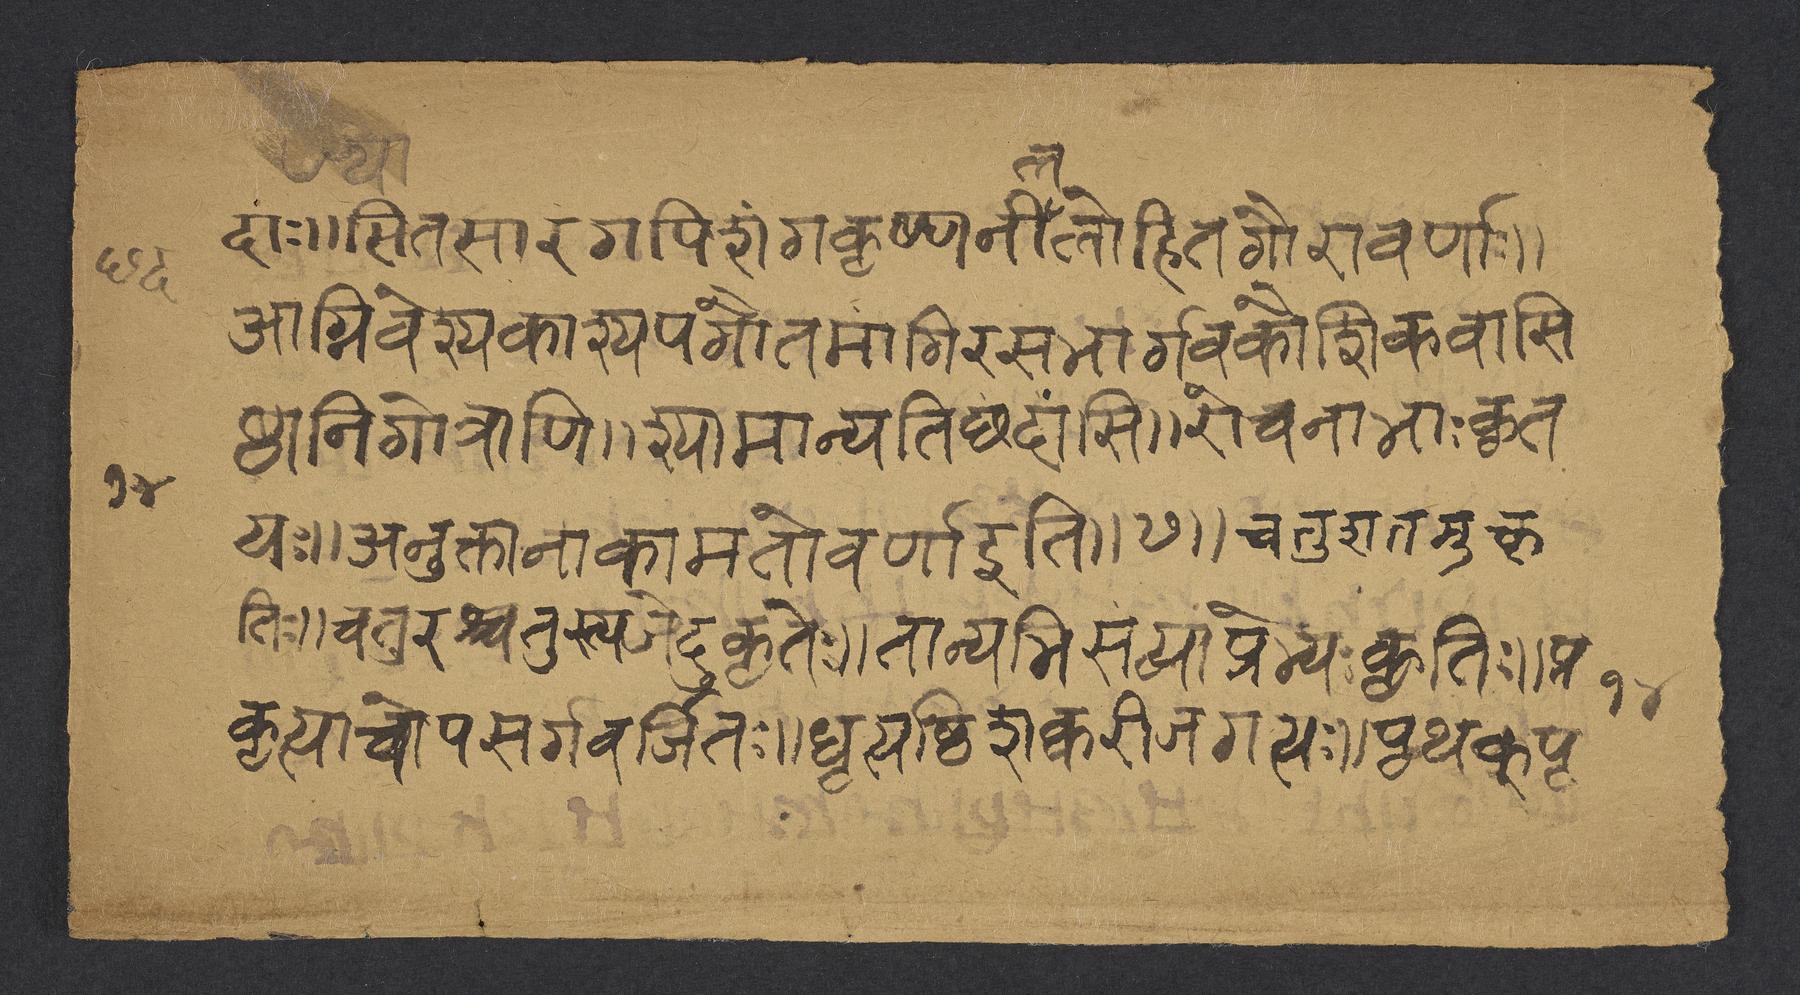 ल
दाः॥सितसारगपिशंगकृष्णनीलोहितगौरावर्णाः॥
छद
आग्निवेश्यकाश्यपगौतमांगिरसभार्गवकौशिकवासि
ष्ठानिगोत्राणि॥श्यामान्यतिछंदांसि॥रोचनाभाःकृत
१४
यः॥अनुक्तानाकामतोवर्णाइति॥७॥चतुशतमुत्कृ
तिः॥चतुरश्चतुरस्त्यजेदुत्कृतेः॥तान्यभिसंव्याप्रेभ्यःकृतिः॥प्र
१४
कृत्याचोपसर्गवर्जितः॥धृत्यष्टिशक्वरीजगत्यः॥पृथक्पृ